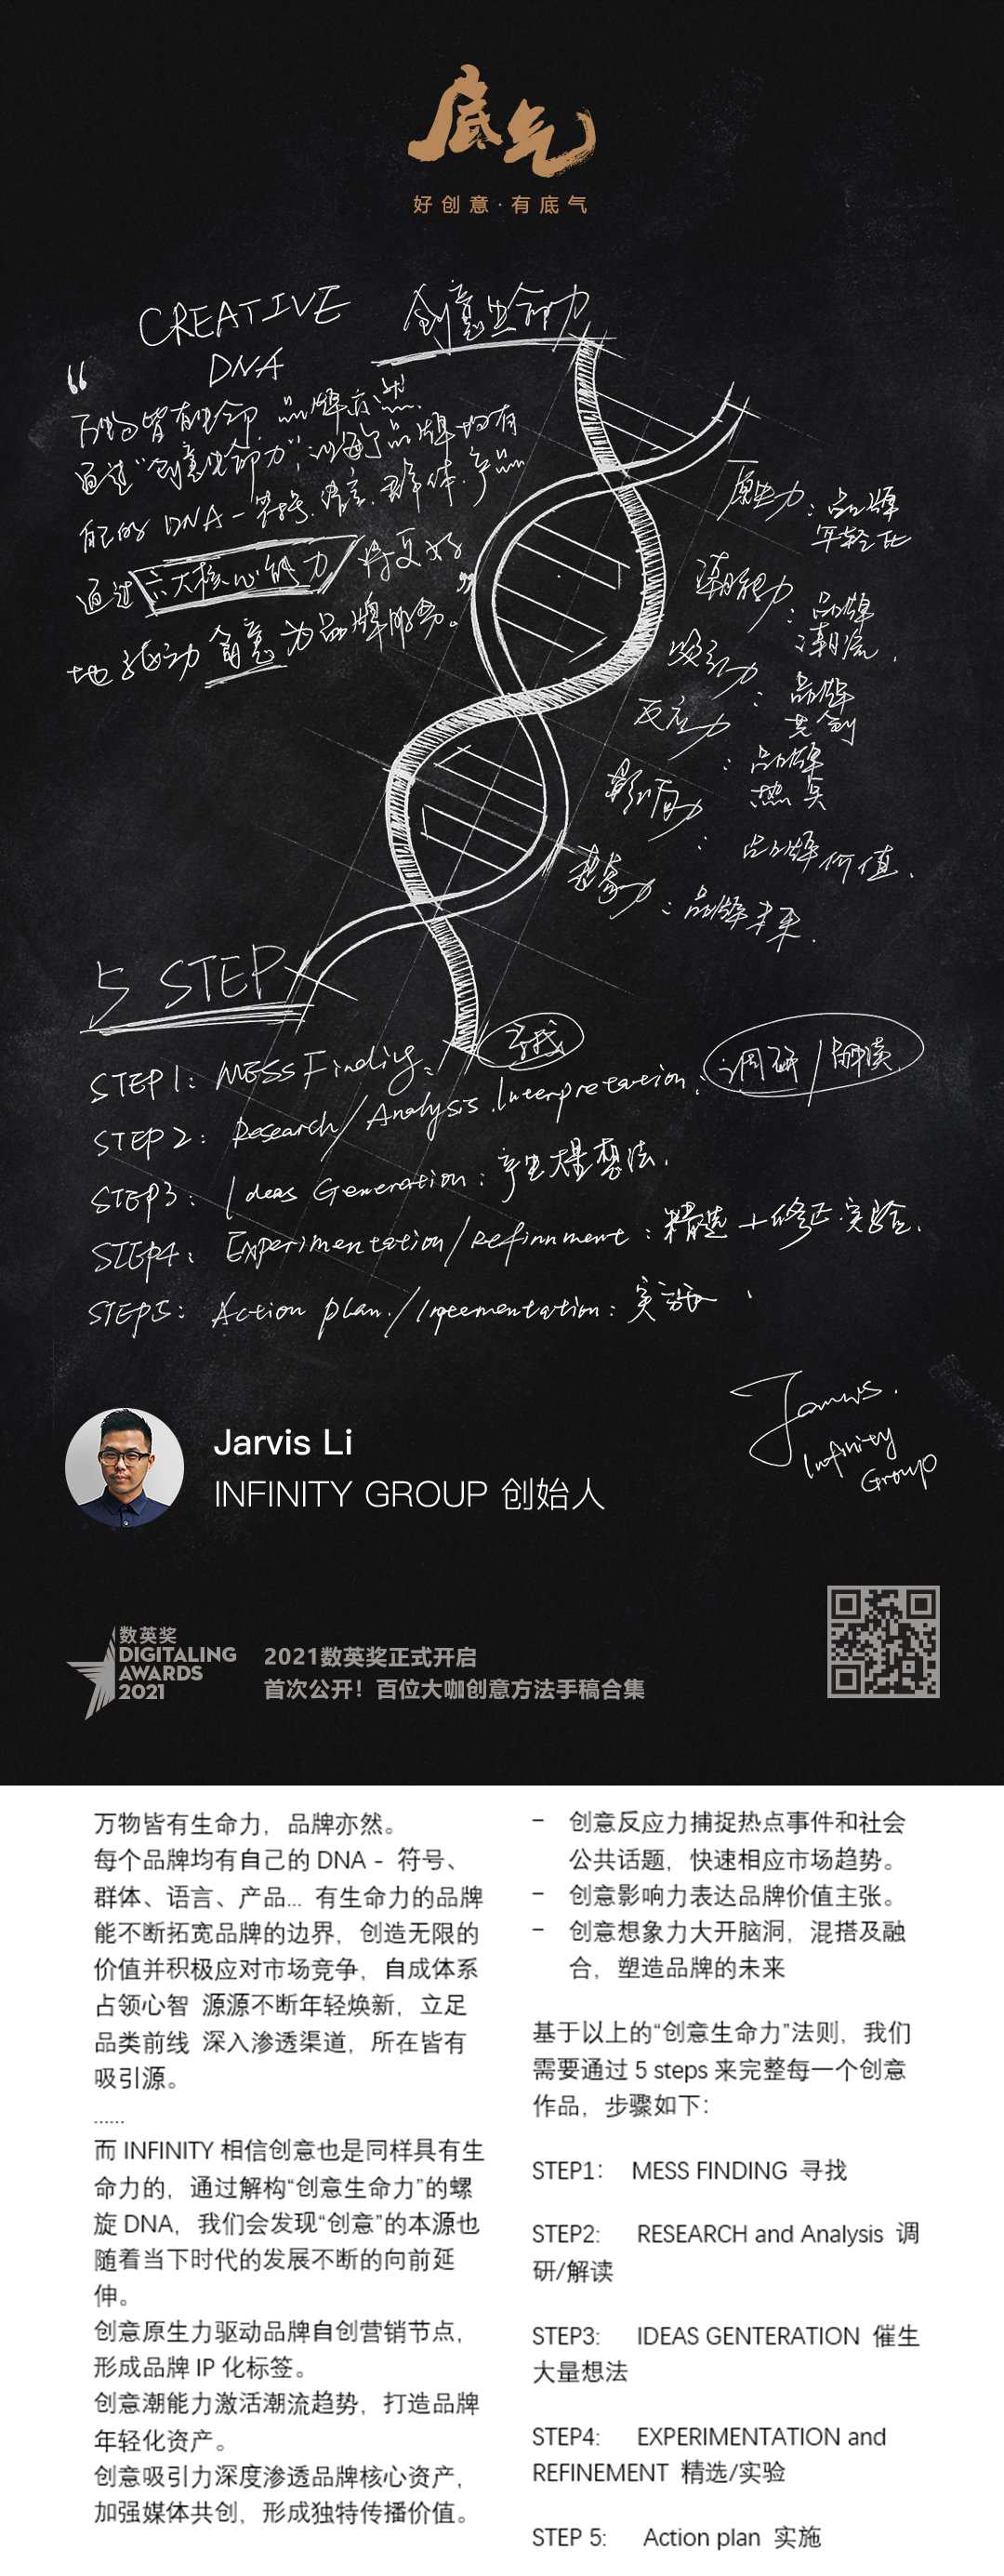 底气
好创意·有底气
CREATIVE
DNA
创意生命力
“
万物皆有生命, 品牌亦然.
通过“创意生命力”, 让每个品牌均有
自己的 DNA - 符号. 语言. 群体. 产品
通过六大核心能力 将更好
地驱动创意为品牌服务。”
原生力: 品牌
年轻化
潮能力: 品牌
潮流.
吸引力: 品牌
共创
反应力: 品牌
热点
影响力: 品牌价值.
想象力: 品牌未来.
5 STEP
STEP1: MESS Finding: 寻找
STEP2: Research/Analysis.Interpretation: 调研/解读
STEP3: Ideas Generation: 产生大量想法.
STEP4: Experimentation/Refinnment: 精选+修正.实验.
STEP5: Action plan./ 实施
Jarvis.
Infinity
Group
Jarvis Li
INFINITY GROUP 创始人
数英奖
DIGITALING
AWARDS
2021
2021数英奖正式开启
首次公开！百位大咖创意方法手稿合集
万物皆有生命力，品牌亦然。
每个品牌均有自己的 DNA - 符号、
群体、语言、产品... 有生命力的品牌
能不断拓宽品牌的边界，创造无限的
价值并积极应对市场竞争，自成体系
占领心智 源源不断年轻焕新，立足
品类前线 深入渗透渠道，所在皆有
吸引源。
......
而 INFINITY 相信创意也是同样具有生
命力的，通过解构“创意生命力”的螺
旋 DNA，我们会发现“创意”的本源也
随着当下时代的发展不断的向前延
伸。
创意原生力驱动品牌自创营销节点，
形成品牌 IP 化标签。
创意潮能力激活潮流趋势，打造品牌
年轻化资产。
创意吸引力深度渗透品牌核心资产，
加强媒体共创，形成独特传播价值。
- 创意反应力捕捉热点事件和社会
公共话题，快速相应市场趋势。
- 创意影响力表达品牌价值主张。
- 创意想象力大开脑洞，混搭及融
合，塑造品牌的未来
基于以上的“创意生命力”法则，我们
需要通过 5 steps 来完整每一个创意
作品，步骤如下：
STEP1： MESS FINDING 寻找
STEP2: RESEARCH and Analysis 调
研/解读
STEP3: IDEAS GENTERATION 催生
大量想法
STEP4: EXPERIMENTATION and
REFINEMENT 精选/实验
STEP 5: Action plan 实施